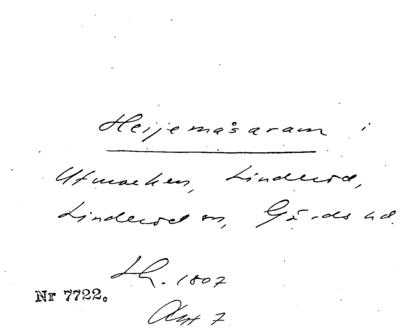 Heijemåsaram i
Utmarken, Linderöd,
Linderöd sn, Gärds hd.
Lh. 1807
Nr 7722.
Akt 7